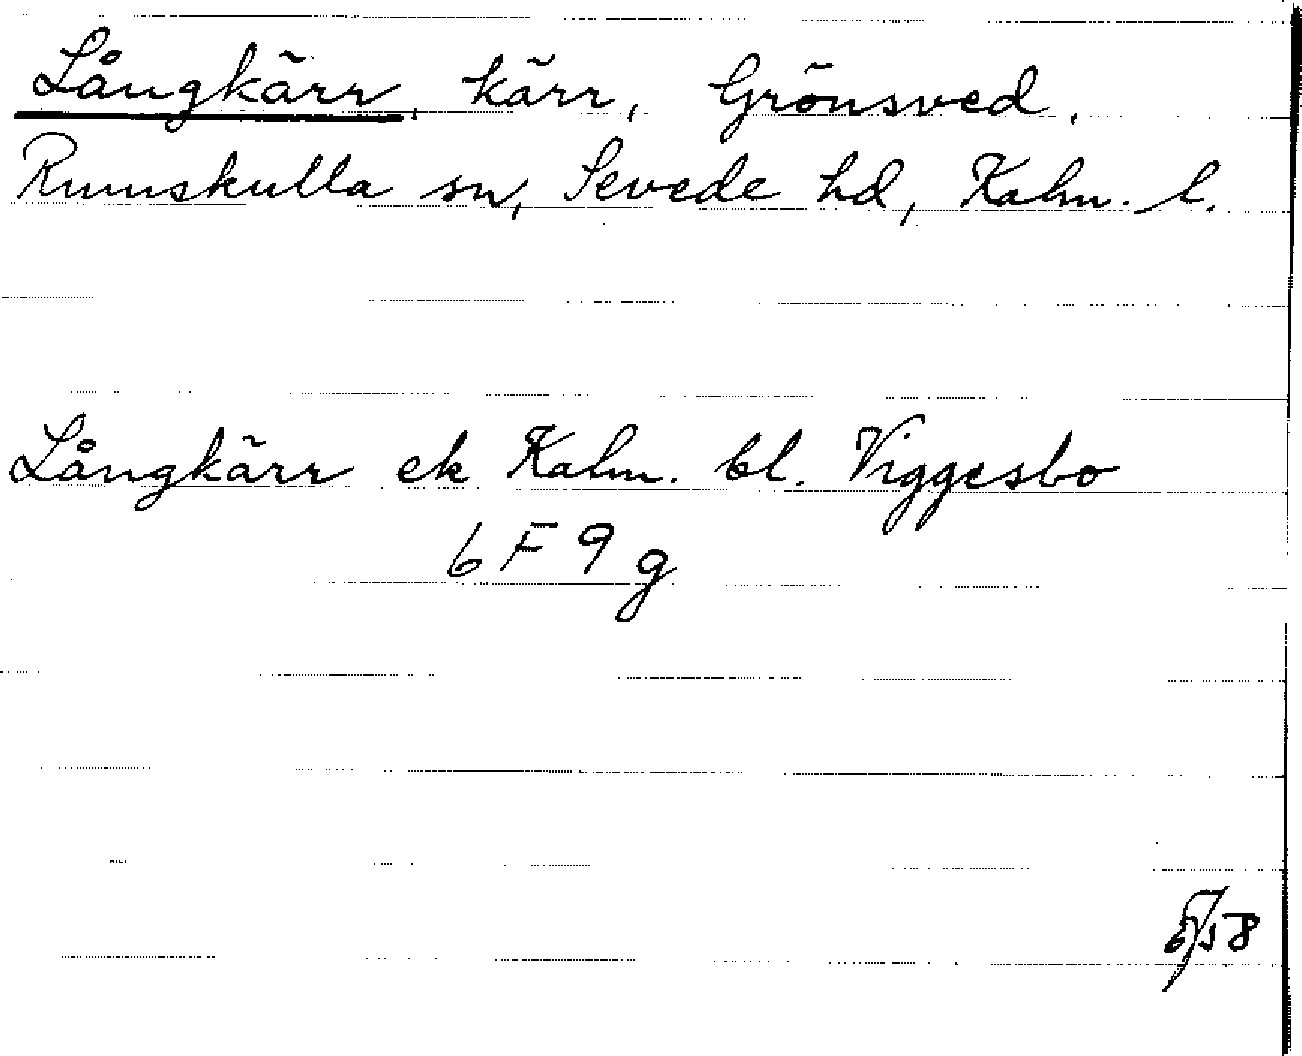 Långkärr, kärr, Grönsved,
Rumskulla sn, Sevede hd, Kalm. l.
Långkärr ek Kalm. bl. Viggesbo
6 F 9 g